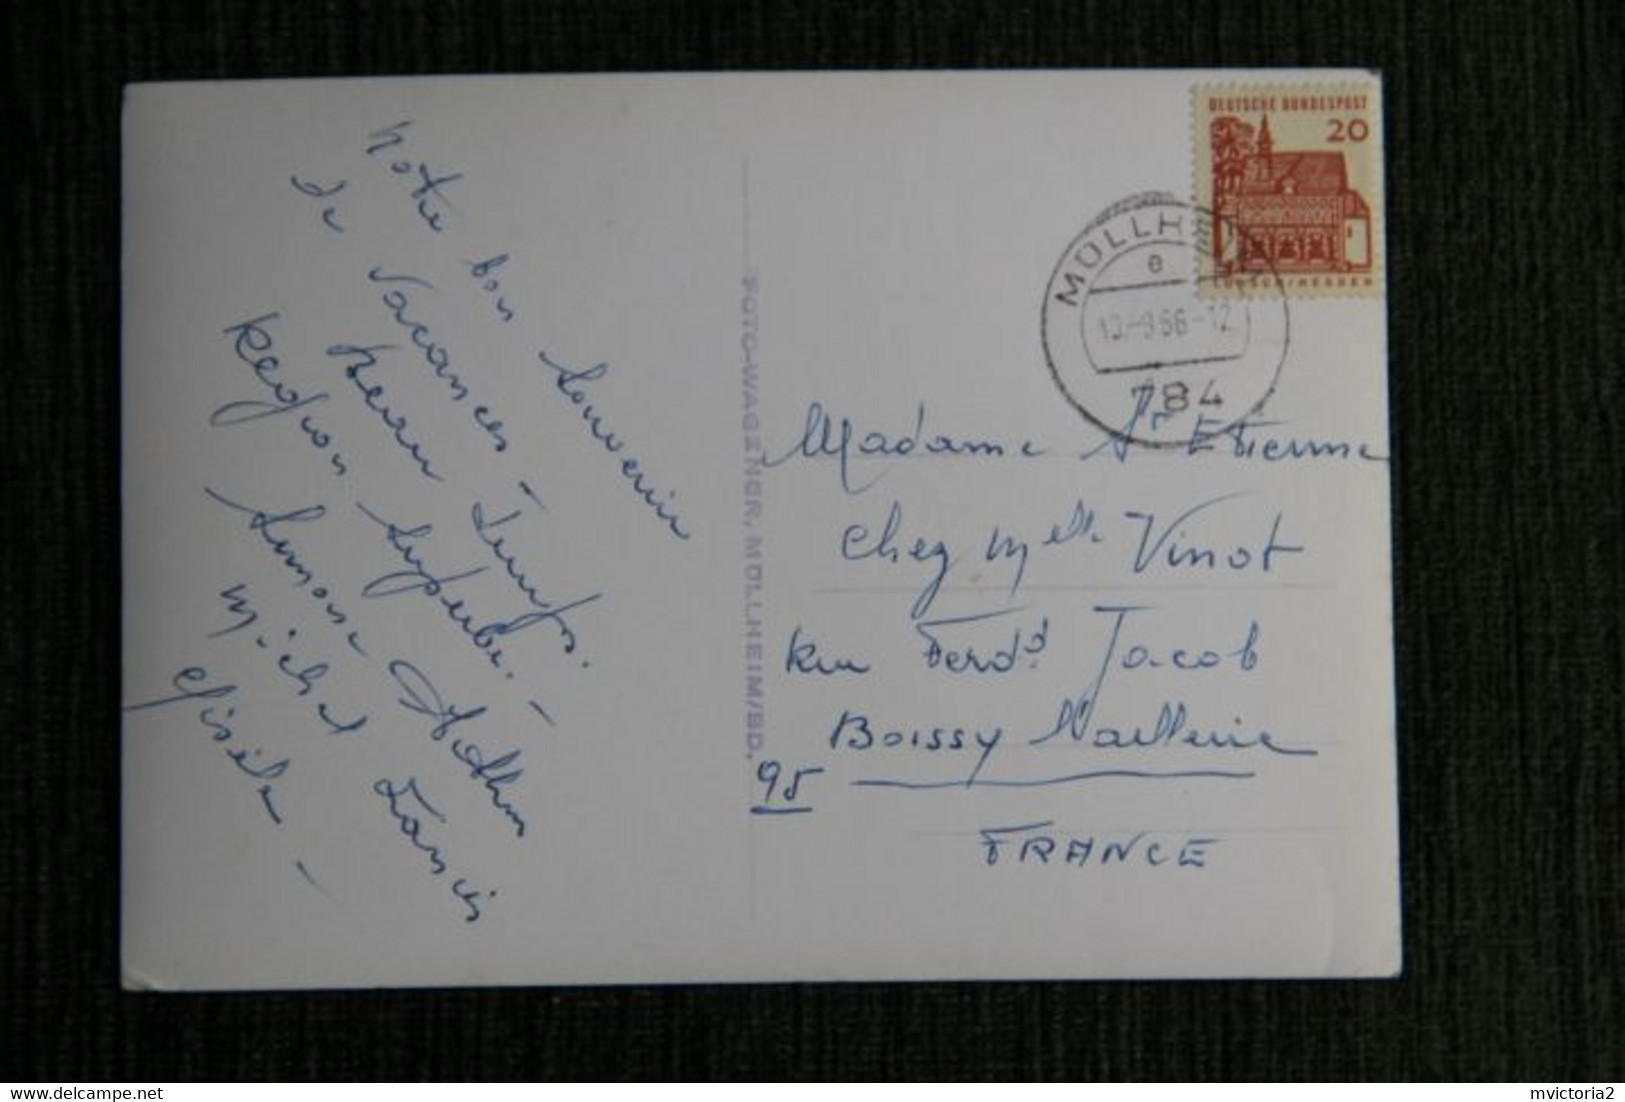 Notre bon Souvenir
de Vacances -
beau temps.
Région Superbe. -
Simone
Michel Francis
Gisèle -
FOTO-WAGENER, MÜLLHEIM/BD.
DEUTSCHE BUNDESPOST
20
LORSCH/HESSEN
MÜLLHEIM
e
10.-9.66-12
784
Madame St Etienne
Chez Melle. Vinot
Rue Ferdd Jacob
Boissy
95
FRANCE
mvictoria2
delcampe.net